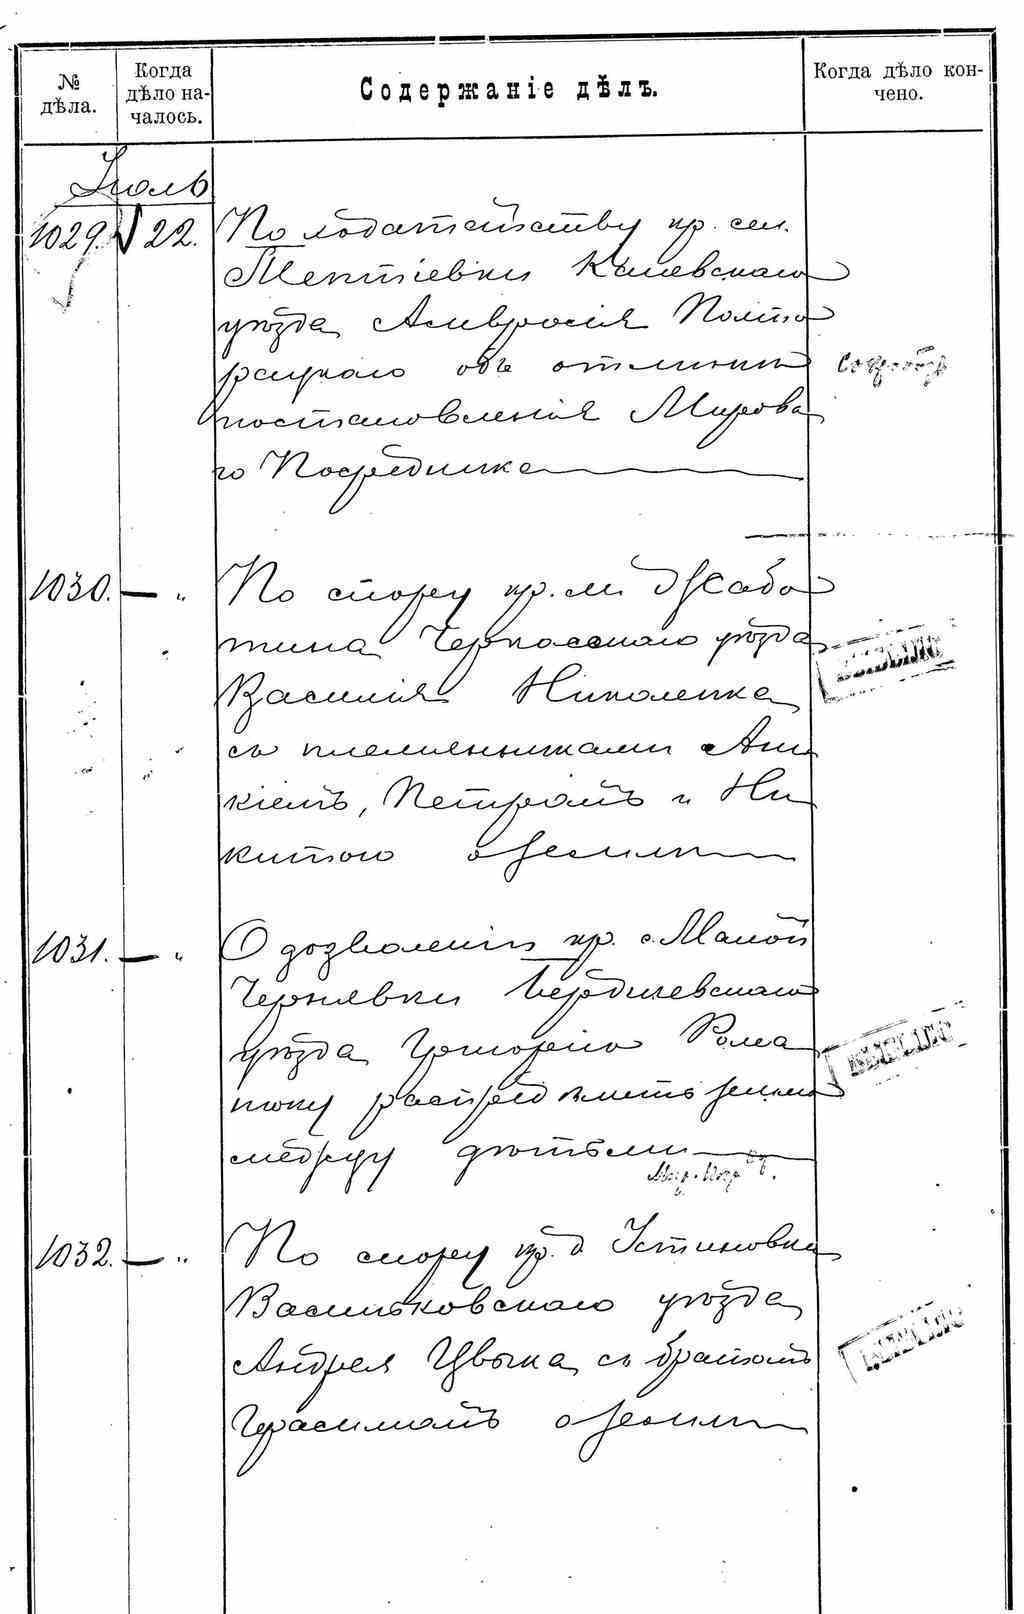 № дѣла.
Когда дѣло началось.
Содержаніе дѣлъ.
Когда дѣло кончено.
Іюль
1029. 22. По ходатайству кр. сел.
Тептіевки Каневскаго
уѣзда Амвросія Полто
рацкаго объ отмѣнѣ
постановленія Мирова
го Посредника
1030. — „ По спору кр. м. Жабо
тина Черкасскаго уѣзда
Василія Николенка
съ племянниками Ани
кіемъ, Петромъ и Ни
китою о земли
1031. — „ О дозволеніи кр. с. Малой
Чернявки Бердичевскаго
уѣзда Григорію Рома
нюку распредѣлить землю
между дѣтьми
1032. — „ По спору кр. д. Устиновки
Васильковскаго уѣзда
Андрея Цвыка съ братомъ
Герасимомъ о земли